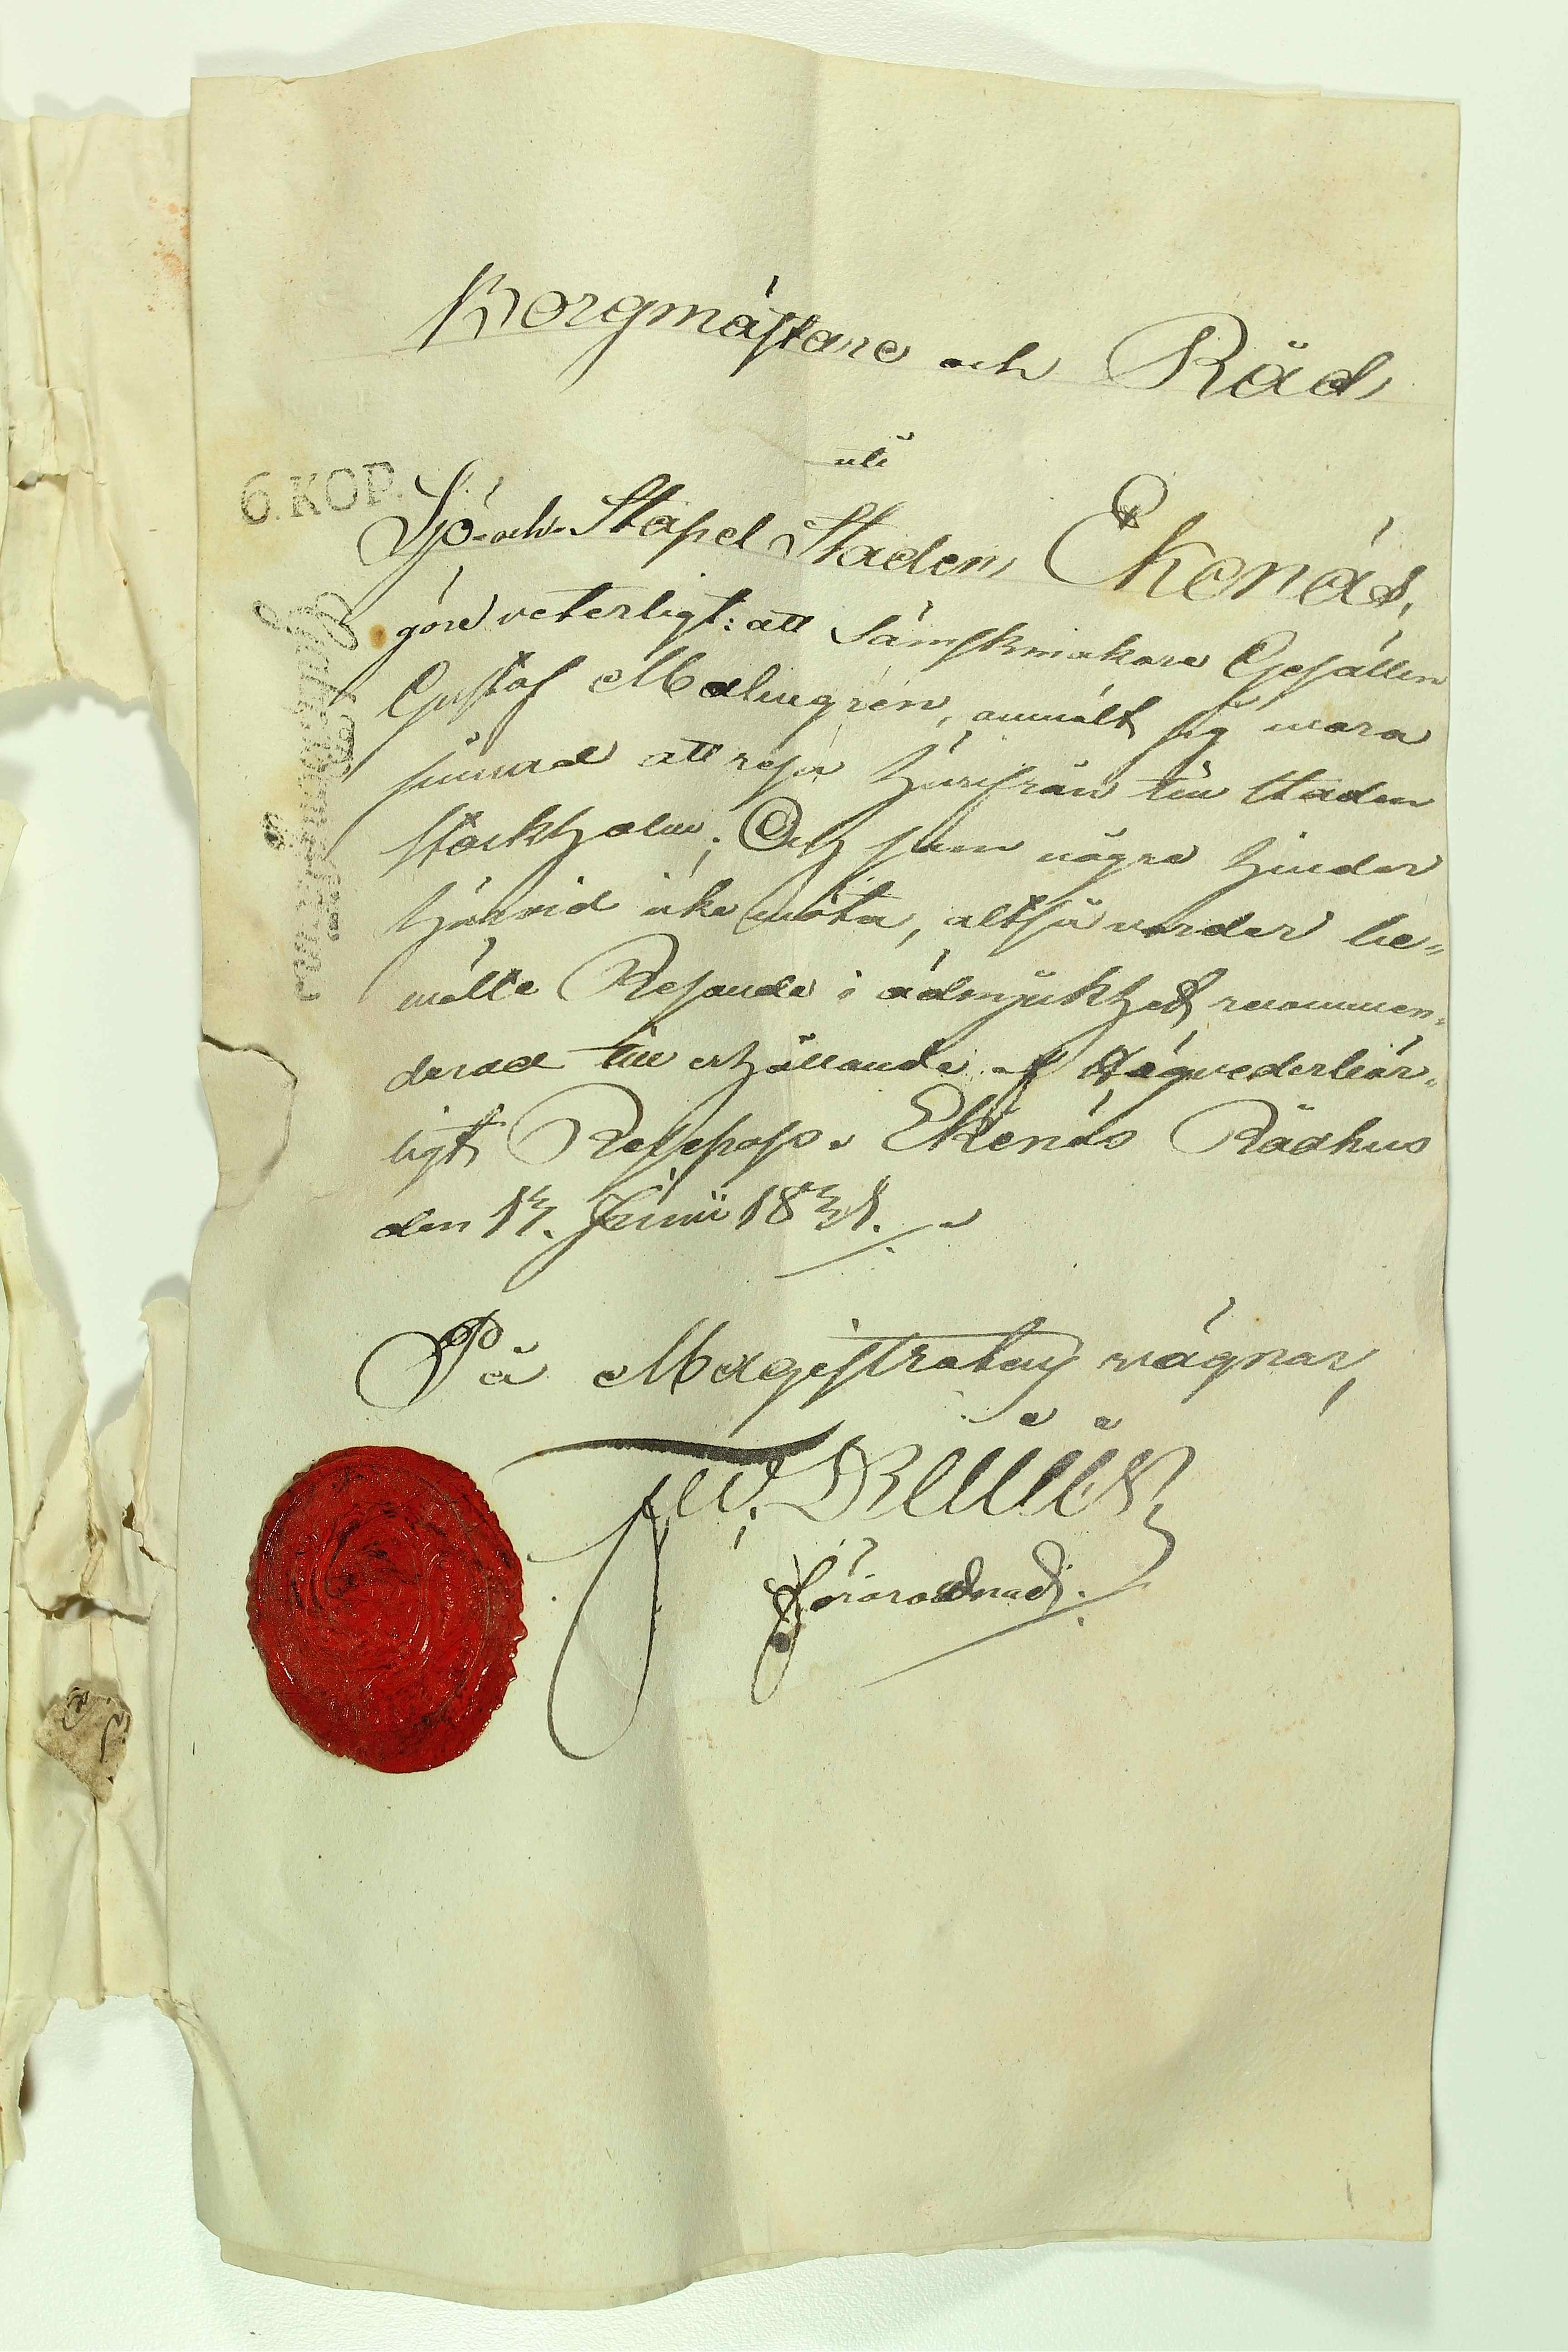 Borgmästare och Råd,
uti
6. KOP.
Sjö- och Stapel Staden, Ekenäs,
göre veterligt: att Sämskmakare Gesällen
Gustaf Malmgrén, anmält sig wara
sinnad att resa härifrån till Staden
Stockholm; Och som några hinder
härvid icke möta, altså varder be-
mälte Resande i ödmjukhet recommen-
derad till erhållande af wägwederbör-
ligt Respass. Ekenäs Rådhus
den 17. Junii 1831.
På Magistratens wägnar,
förordnad.